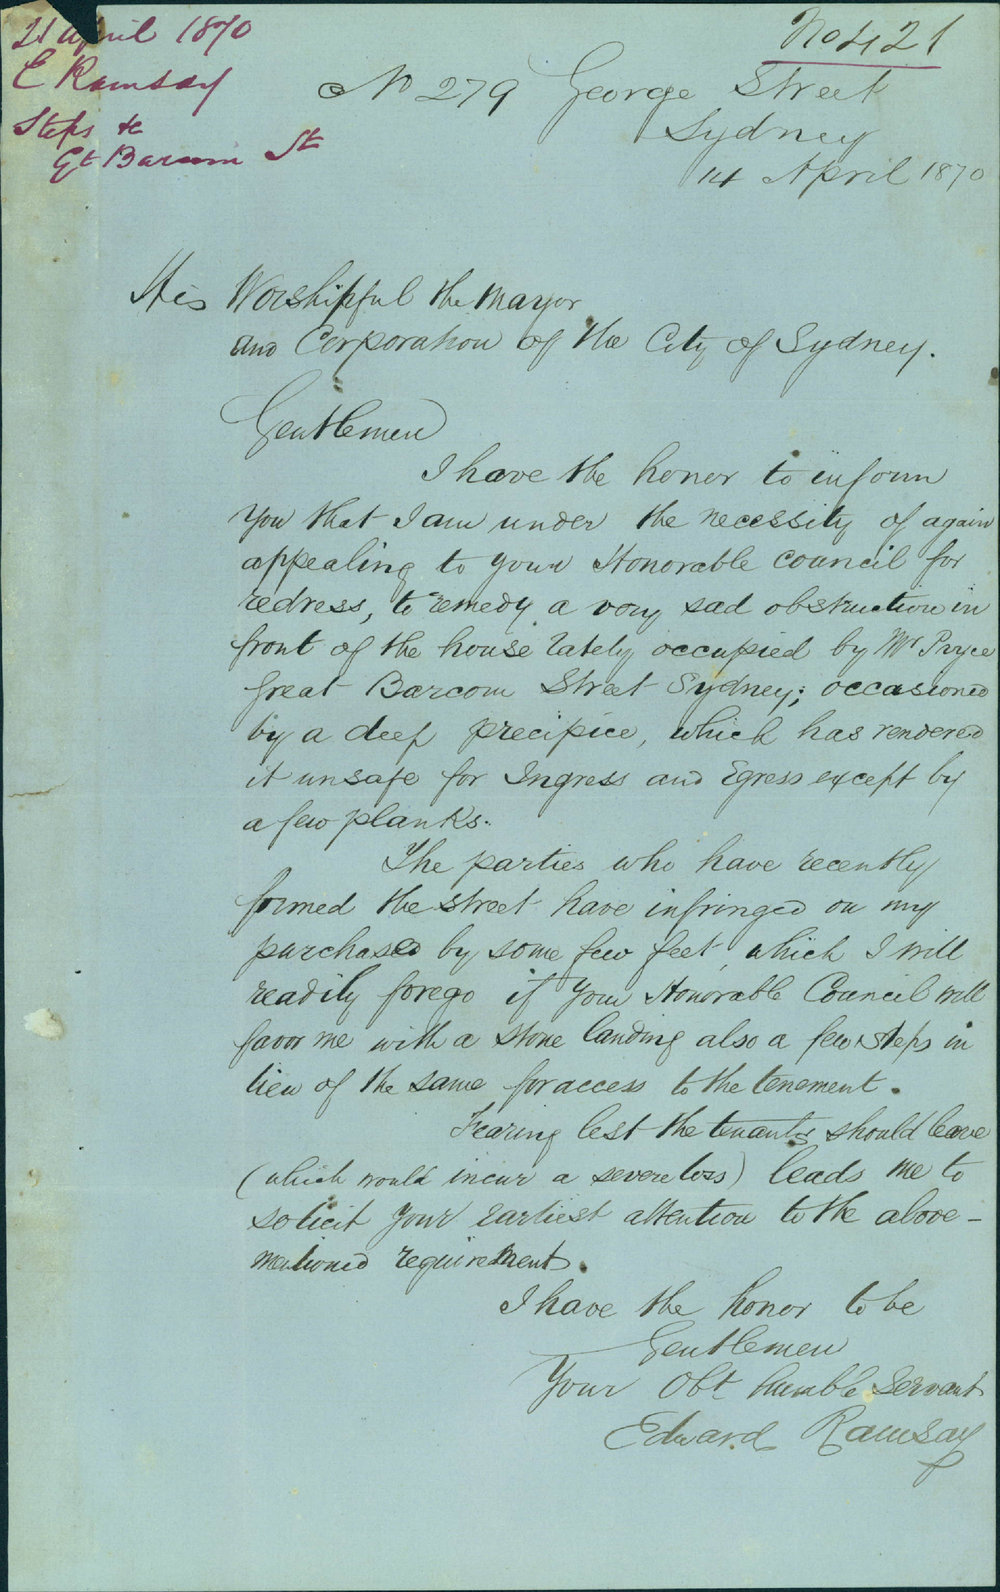 21 April 1870
E Ramsay
Steps &c
Gt Barcom St
No 421
No 279 George Street
Sydney
14 April 1870
His Worshipful the Mayor
and Corporation of the City of Sydney.
Gentlemen
I have the honor to inform
You that I am under the necessity of again
appealing to your Honorable council for
redress, to remedy a very sad obstruction in
front of the house lately occupied by Mr Pryce
Great Barcom Street Sydney; occasioned
by a deep precipice, which has rendered
it unsafe for Ingress and Egress except by
a few planks.
The parties who have recently
formed the street have infringed on my
purchased by some few feet, which I will
readily forego if Your Honorable Council will
favor me with a stone landing also a few steps in
lieu of the same for access to the tenement.
Fearing lest the tenants should leave
(which would incur a severe loss) leads me to
solicit your earliest attention to the above-
mentioned requirement.
I have the honor to be
Gentlemen
Your Obt humble Servant
Edward Ramsay